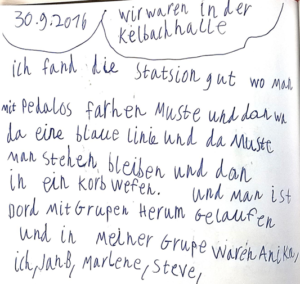 30.9.2016
wir waren in der
Kelbachhalle
ich fand die Statsion gut wo man
mit Pedalos farhen Muste und dan wa
da eine blaue linie und da Muste
man stehen bleiben und dan
in ein Korb wefen. und man ist
Dord mit Grupen Herum Gelaufen
und in meiner Grupe waren Anika,
ich, Jan B, Marlene, Steve,